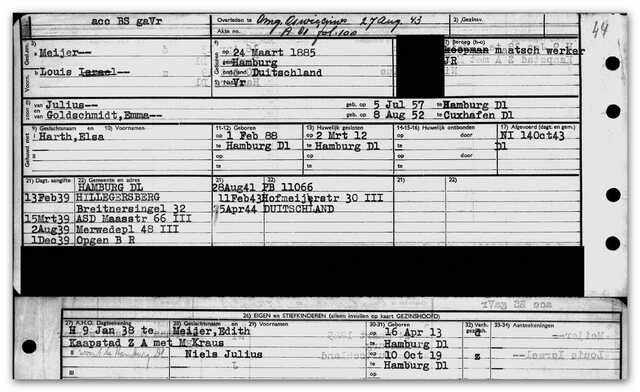 acc BS gaVr
Overleden te Omg. Auschwitz 27 Aug. 43
Akte no. A 81 fol. 100
2) Gezinsv.
44
3)
4)
7) Beroep (h-o)
Meijer--
op 24 Maart 1885
koopman maatsch werker
te Hamburg
JR
b Louis Israel--
land Duitschland
5) Nat. Vr
van Julius--
geb. op 5 Jul 57 te Hamburg Dl
van Goldschmidt, Emma--
geb. op 8 Aug 52 te Cuxhafen Dl
Gehuwd met
9) Geslachtsnaam en 10) Voornamen
11-12) Geboren
13) Huwelijk gesloten
14-15-16) Huwelijk ontbonden
17) Afgevoerd (dagt. en gem.)
Harth, Elsa
op 1 Feb 88
op 2 Mrt 12
op
NI 14Oct43
te Hamburg Dl
te Hamburg Dl
te
Dl
21) Dagt. aangifte
22) Gemeente en adres
21)
22)
HAMBURG DL
28Aug41 PB 11066
13Feb39 HILLEGERSBERG
11Feb43 Hofmeijerstr 30 III
Breitnersingel 32
25Apr44 DUITSCHLAND
15Mrt39 ASD Maasstr 66 III
2Aug39 Merwedepl 48 III
1Dec39 Opgen B R
26) EIGEN en STIEFKINDEREN (alleen invullen op kaart GEZINSHOOFD)
27) A.H.O. Dagteekening
28) Geslachtsnaam en 29) Voornamen
30-31) Geboren
32) Verh.
33-34) Aanteekeningen
H 9 Jan 38 te
Meijer, Edith
op 16 Apr 13
d
Kaapstad Z A met M Kraus
te Hamburg Dl
Niels Julius
op 10 Oct 19
z
te Hamburg Dl